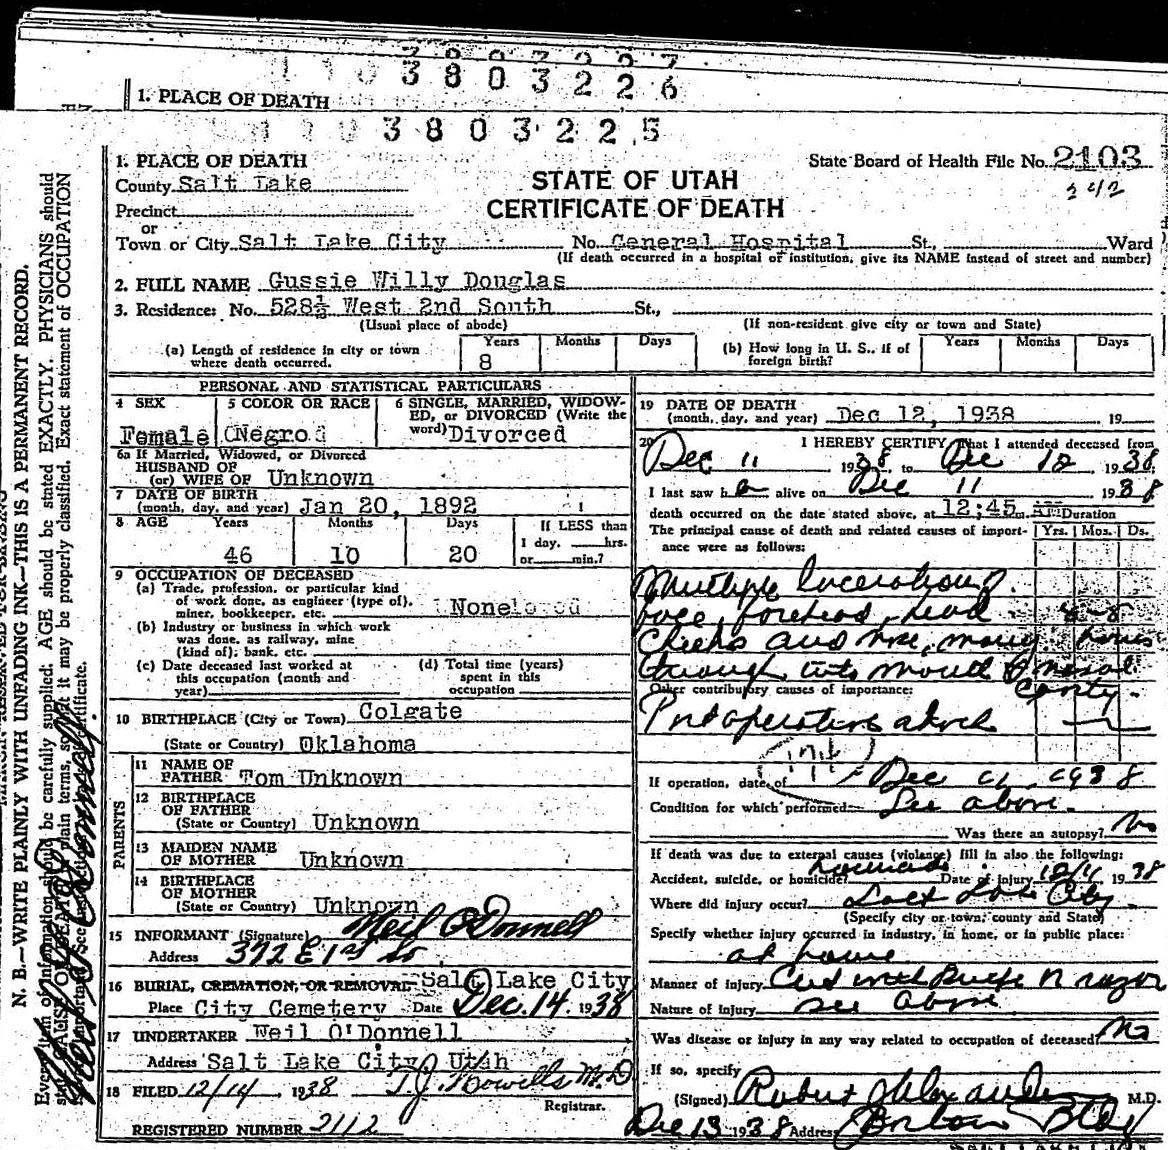 3803226
1. PLACE OF DEATH
3803225
1. PLACE OF DEATH
State Board of Health File No. 2103
County Salt Lake
242
STATE OF UTAH
CERTIFICATE OF DEATH
Precinct
or
Town or City Salt Lake City No. General Hospital St., Ward
(If death occurred in a hospital or institution, give its NAME instead of street and number)
2. FULL NAME Gussie Willy Douglas
3. Residence: No. 528½ West 2nd South St.,
(Usual place of abode) (If non-resident give city or town and State)
(a) Length of residence in city or town where death occurred. Years 8 Months Days
(b) How long in U. S., if of foreign birth? Years Months Days
PERSONAL AND STATISTICAL PARTICULARS
4 SEX Female
5 COLOR OR RACE Negro
6 SINGLE, MARRIED, WIDOWED, or DIVORCED (Write the word) Divorced
6a If Married, Widowed, or Divorced
HUSBAND OF
(or) WIFE OF Unknown
7 DATE OF BIRTH
(month, day, and year) Jan 20, 1892
8 AGE Years Months Days If LESS than
1 day, hrs.
46 10 20 or min.?
9 OCCUPATION OF DECEASED
(a) Trade, profession, or particular kind
of work done, as engineer (type of),
miner, bookkeeper, etc. None
(b) Industry or business in which work
was done, as railway, mine
(kind of); bank, etc.
(c) Date deceased last worked at
this occupation (month and
year)
(d) Total time (years)
spent in this
occupation
10 BIRTHPLACE (City or Town) Colgate
(State or Country) Oklahoma
PARENTS
11 NAME OF
FATHER Tom Unknown
12 BIRTHPLACE
OF FATHER
(State or Country) Unknown
13 MAIDEN NAME
OF MOTHER Unknown
14 BIRTHPLACE
OF MOTHER
(State or Country) Unknown
15 INFORMANT (Signature) Neil O'Donnell
Address 372 E 1st So
16 BURIAL, CREMATION, OR REMOVAL Salt Lake City
Place City Cemetery Date Dec. 14, 1938
17 UNDERTAKER Neil O'Donnell
Address Salt Lake City Utah
18 FILED 12/14, 1938 T J Howells M.D
Registrar.
REGISTERED NUMBER 2112
19 DATE OF DEATH
(month, day, and year) Dec 12, 1938 19
20 I HEREBY CERTIFY, That I attended deceased from
Dec 11 1938, to Dec 12 1938.
I last saw h alive on Dec 11 1938
death occurred on the date stated above, at 12:45 m. AM
The principal cause of death and related causes of importance were as follows:
Duration
Yrs. Mos. Ds.
Multiple lacerations
face, forehead, head
cheeks and nose, many hours
through into mouth & nasal
cavity.
Other contributory causes of importance:
Postoperative shock
If operation, date of Dec 11, 1938
Condition for which performed See above.
Was there an autopsy? No
If death was due to external causes (violence) fill in also the following:
Accident, suicide, or homicide? homicide Date of injury 12/11 1938
Where did injury occur? Salt Lake City
(Specify city or town, county and State)
Specify whether injury occurred in industry, in home, or in public place:
at home
Manner of injury Cut with knife or razor
Nature of injury see above
Was disease or injury in any way related to occupation of deceased? No
If so, specify
(Signed) Robert Alexander M.D.
Dec 13 1938 Address Boston Bldg
N. B.—WRITE PLAINLY WITH UNFADING INK—THIS IS A PERMANENT RECORD.
Every item of information should be carefully supplied. AGE should be stated EXACTLY. PHYSICIANS should
state CAUSE OF DEATH in plain terms, so that it may be properly classified. Exact statement of OCCUPATION
certificate.